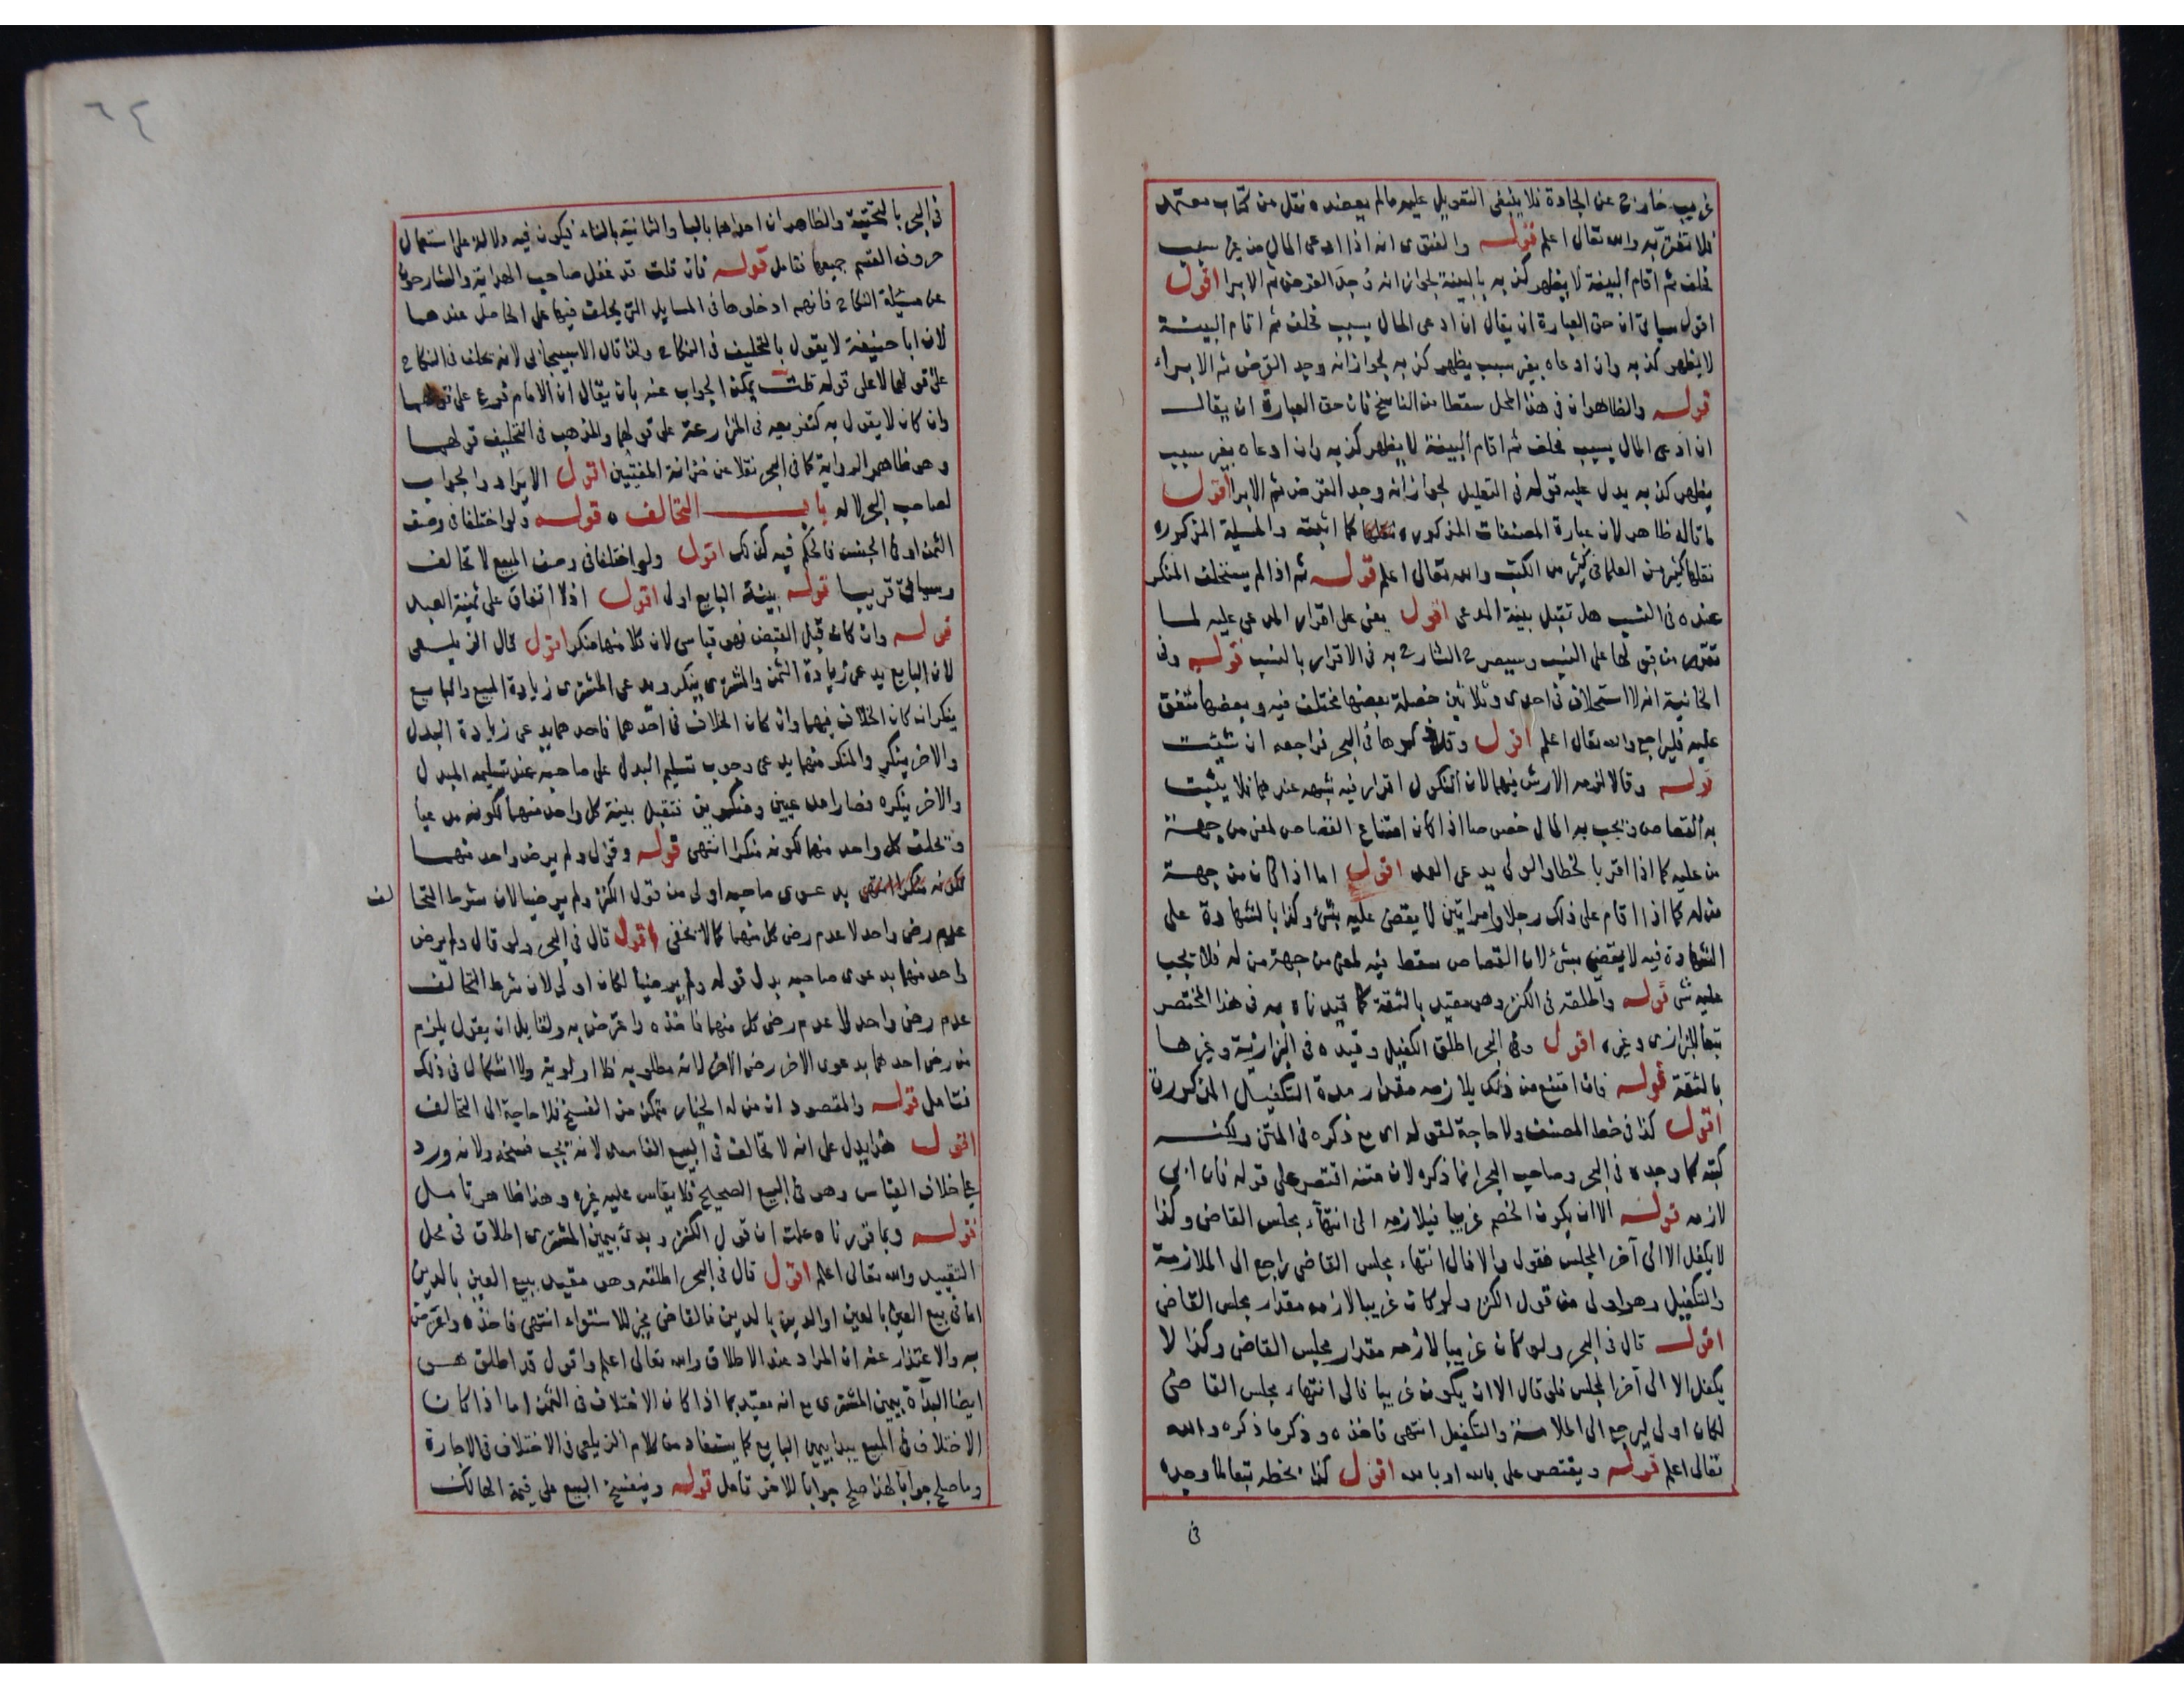 غريب خارج عن الجادة فلا ينبغي التعويل عليه ما لم يعضده نقل من كتاب معتمد
فلا تغتر به والله تعالى اعلم قوله والفتوى انه اذا ادعى المال من غير سبب
فحلف ثم اقام البينة لا يظهر كذبه بالبينة لجواز انه وجد القرض ثم الابرا اقول
اقول سياتي ان حق العبارة ان يقال ان ادعى المال بسبب فحلف ثم اقام البينة
لا يظهر كذبه وان ادعاه بغير سبب يظهر كذبه لجواز انه وجد القرض ثم الابراء
قوله والظاهر ان في هذا المحل سقطا من الناسخ فان حق العبارة ان يقال
ان ادعى المال بسبب فحلف ثم اقام البينة لا يظهر كذبه وان ادعاه بغير سبب
يظهر كذبه يدل عليه قوله في التعليل لجواز انه وجد القرض ثم الابرا اقول
ما قاله ظاهر لان عبارة المصنفات المذكورة كما اثبته والمسيلة المذكورة
نقلها كثير من العلما في كثير من الكتب والله تعالى اعلم قوله ثم اذا لم يستحلف المنكر
عنده في النسب هل تقبل بينة المدعي اقول يعني على اقرار المدعى عليه لما
تقرر من قبولها على النسب وسيصرح الشارح به في الاقرار بالنسب قوله وفي
الخانية انه لا استحلاف في احدى وثلاثين خصلة بعضها مختلف فيه وبعضها متفق
عليه فليراجع والله تعالى اعلم اقول وقد ذكرها في البحر فراجعه ان شيت
قوله وقالا لزمه الارش فيهما لان النكول اقرار فيه شبهة عندهما فلا يثبت
به القصاص ويجب به المال خصوصا اذا كان امتناع القصاص لمعنى من جهة
من عليه كما اذا اقر بالخطا والولي يدعي العمد اقول اما اذا كان من جهة
من له كما اذا اقام على ذلك رجلا وامراتين لا يقضى عليه بشئ وكذا بالشهادة على
الشهادة فيه لا يقضى بشئ لان القصاص سقط فيه لمعنى من جهة من له فلا يجب
عليه شي قوله واطلقه في الكنز وهو مقيد بالثقة كما قيدناه به في هذا المختصر
تبعا للبزازي وغيره اقول وفي البحر اطلق الكفيل وقيده في البزازية وغيرها
بالثقة قوله فان امتنع من ذلك يلازمه مقدار مدة التكفيل المذكورة
اقول كذا في خط المصنف ولا حاجة لقوله اى مع ذكره في المتن ولكنه
كتبه كما وجده في البحر وصاحب البحر انما ذكره لان متنه اقتصر على قوله فان ابى
لازمه قوله الا ان يكون الخصم غريبا فيلازمه الى انتهاء مجلس القاضي وكذا
لا يكفل الا الى آخر المجلس فقول والا فالى انتهاء مجلس القاضي راجع الى الملازمة
والتكفيل وهو اولى من قول الكنز ولو كان غريبا لازمه مقدار مجلس القاضي
اقول قال في البحر ولو كان غريبا لازمه مقدار مجلس القاضي وكذا لا
يكفل الا الى آخر المجلس فلو قال الا ان يكون غريبا فالى انتهاء مجلس القاضي
لكان اولى ليرجع الى الملازمة والتكفيل انتهى فاخذه وذكر ما ذكره والله
تعالى اعلم قوله ويقتصر على بالله او بالله اقول كذا بخطه تبعا لما وجده
في
٦٤
في البحر بالتحتية والظاهر ان احداهما بالبا والثانية بالتاء فيكون فيه دلالة على استعمال
حروف القسم جميعها تامل قوله فان قلت قد غفل صاحب الهداية والشارحون
عن مسئلة النكاح فانهم ادخلوها في المسايل التي يحلف فيها على الحاصل عندهما
لان ابا حنيفة لا يقول بالتحليف في النكاح ولذا قال الاسبيجابي لانه يحلف في النكاح
على قولهما لا على قوله قلت يمكن الجواب عنه بان يقال ان الامام فرع على قولهما
وان كان لا يقول به كتفريعه في المزارعة على قولهما والمذهب في التحليف قولهما
وهو ظاهر الرواية كما في البحر نقلا عن خزانة المفتيين اقول الايراد والجواب
لصاحب البحر لا له باب التحالف قوله ولو اختلفا في وصف
الثمن او في الجنس فالحكم فيه كذلك اقول ولو اختلفا في وصف المبيع لا تحالف
وسياتي قريبا قوله بينة البايع اولى اقول اذ لا اتفاق على ثمنية العبد
قوله وان كان قبل القبض فهو قياسي لان كلا منهما منكر اقول قال الزيلعي
لان البايع يدعي زيادة الثمن والمشتري ينكر ويدعي المشتري زيادة المبيع والبايع
ينكر ان كان الخلاف فيهما وان كان الخلاف في احدهما فاحدهما يدعي زيادة البدل
والاخر ينكر والمنكر منهما يدعي وجوب تسليم البدل على صاحبه عند تسليمه المبدل
والاخر ينكره فصارا مدعيين ومنكرين فتقبل بينة كل واحد منهما لكونه مدعيا
ويحلف كل واحد منهما لكونه منكرا انتهى قوله وقولي ولم يرض واحد منهما
لكونه منكرا انتهى بدعوى صاحبه اولى من قول الكنز ولم يرضيا لان شرط التحا لف
عدم رضى واحد لا عدم رضى كل منهما كما لا يخفى اقول قال في البحر ولو قال ولم يرض
واحد منهما بدعوى صاحبه بدل قوله ولم يرضيا لكان اولى لان شرط التحالف
عدم رضى واحد لا عدم رضى كل منهما فاخذه واعترض به ولقايل ان يقول يلزم
من رضى احدهما بدعوى الاخر رضى الاخر لانه مطلوبه فلا اولوية ولا اشكال في ذلك
فتامل قوله والمقصود ان من له الخيار متمكن من الفسخ فلا حاجة الى التحالف
اقول هذا يدل على انه لا تحالف في البيع الفاسد لانه يجب فسخه ولانه ورد
على خلاف القياس وهو في البيع الصحيح فلا يقاس عليه غيره وهذا ظاهر تامل
قوله وبما قررناه علمت ان قول الكنز وبدئ بيمين المشتري اطلاق في محل
التقييد والله تعالى اعلم اقول قال في البحر اطلقه وهو مقيد ببيع العين بالدين
اما في بيع العين بالعين او الدين بالدين فالقاضي مخير للاستواء انتهى فاخذه واعترض
به والاعتذار عنه ان المراد عند الاطلاق والله تعالى اعلم واقول قد اطلق هو
ايضا البداة بيمين المشتري مع انه مقيد بما اذا كان الاختلاف في الثمن اما اذا كان
الاختلاف في المبيع يبدا بيمين البايع كما يستفاد من كلام الزيلعي في الاختلاف في الاجارة
وما صلح جوابا لهذا صلح جوابا للاخر تامل قوله وينفسخ البيع على قيمة الهالك